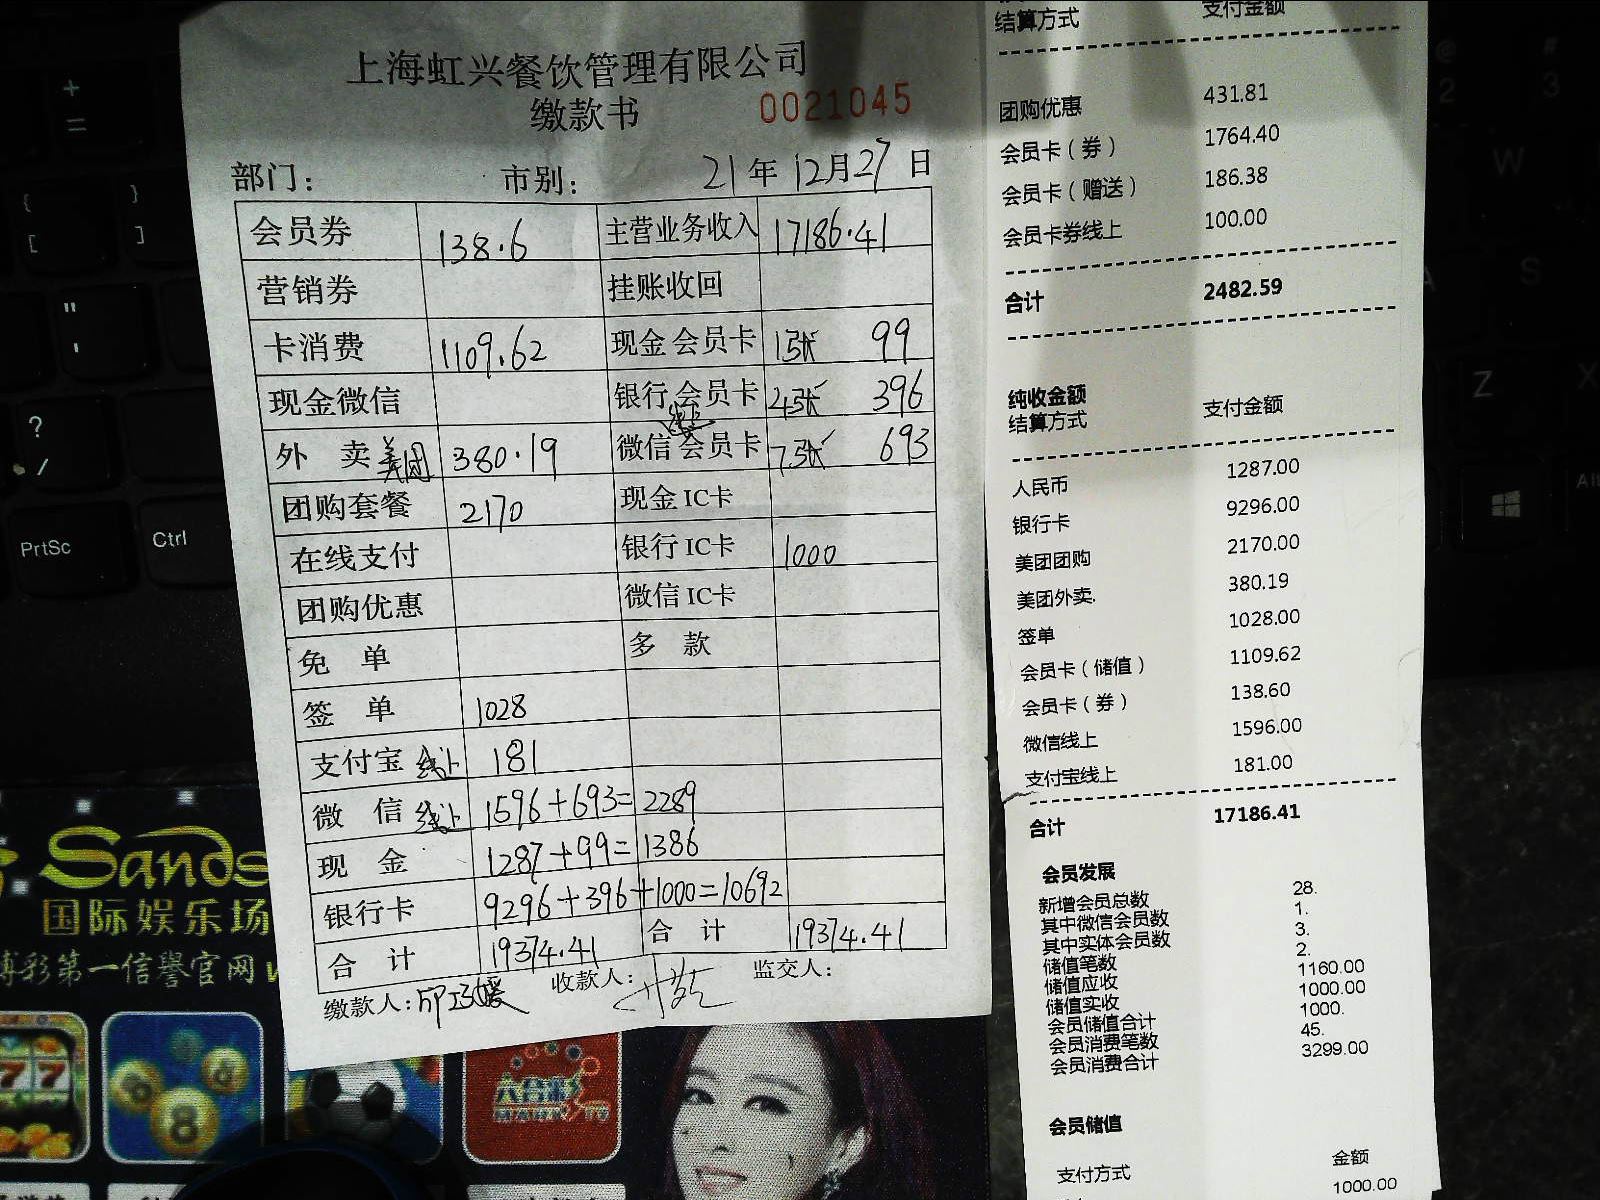 上海虹兴餐饮管理有限公司
缴款书 0021045
部门： 市别： 21年12月27日
会员券 138.6 主营业务收入 17186.41
营销券 挂账收回
卡消费 1109.62 现金会员卡 1张 99
现金微信 银行会员卡 4张 396
外 卖 美团 380.19 微信 线上 会员卡 7张 693
团购套餐 2170 现金IC卡
在线支付 银行IC卡 1000
团购优惠 微信IC卡
免 单 多 款
签 单 1028
支付宝 线上 181
微 信 线上 1596+693=2289
现 金 1287+99=1386
银行卡 9296+396+1000=10692
合 计 19374.41 合 计 19374.41
缴款人： 收款人： 监交人：
结算方式 支付金额
团购优惠 431.81
会员卡（券） 1764.40
会员卡（赠送） 186.38
会员卡券线上 100.00
合计 2482.59
纯收金额
结算方式 支付金额
人民币 1287.00
银行卡 9296.00
美团团购 2170.00
美团外卖. 380.19
签单 1028.00
会员卡（储值） 1109.62
会员卡（券） 138.60
微信线上 1596.00
支付宝线上 181.00
合计 17186.41
会员发展
新增会员总数 28.
其中微信会员数 1.
其中实体会员数 3.
储值笔数 2.
储值应收 1160.00
储值实收 1000.00
会员储值合计 1000.
会员消费笔数 45.
会员消费合计 3299.00
会员储值
支付方式 金额
1000.00
PrtSc
Ctrl
Sands
国际娱乐场
博彩第一信誉官网
六合彩
MARK